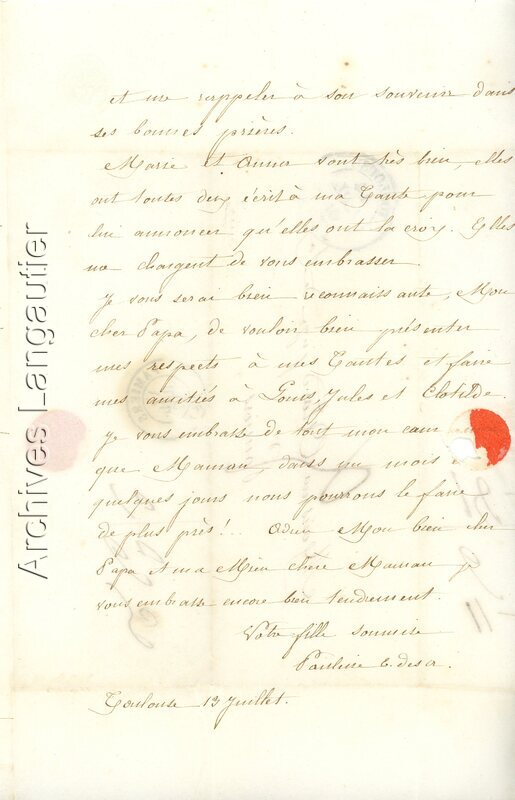 et me rappeler à son souvenir dans
ses bonnes prières.
Marie et Anna sont très bien, elles
ont toutes deux écrit à ma Tante pour
lui annoncer qu'elles ont la croix. Elles
me chargent de vous embrasser.
Je vous serai bien reconnaissante, Mon
cher Papa, de vouloir bien présenter
mes respects à mes Tantes et faire
mes amitiés à Louis, Jules et Clotilde.
Je vous embrasse de tout mon cœur
que Maman, dans un mois
quelques jours nous pourrons le faire
de plus près!.. Adieu Mon bien cher
Papa et ma Bien chère Maman je
vous embrasse encore bien tendrement.
Votre fille soumise
Pauline
Toulouse 13 Juillet.
Archives Langautier